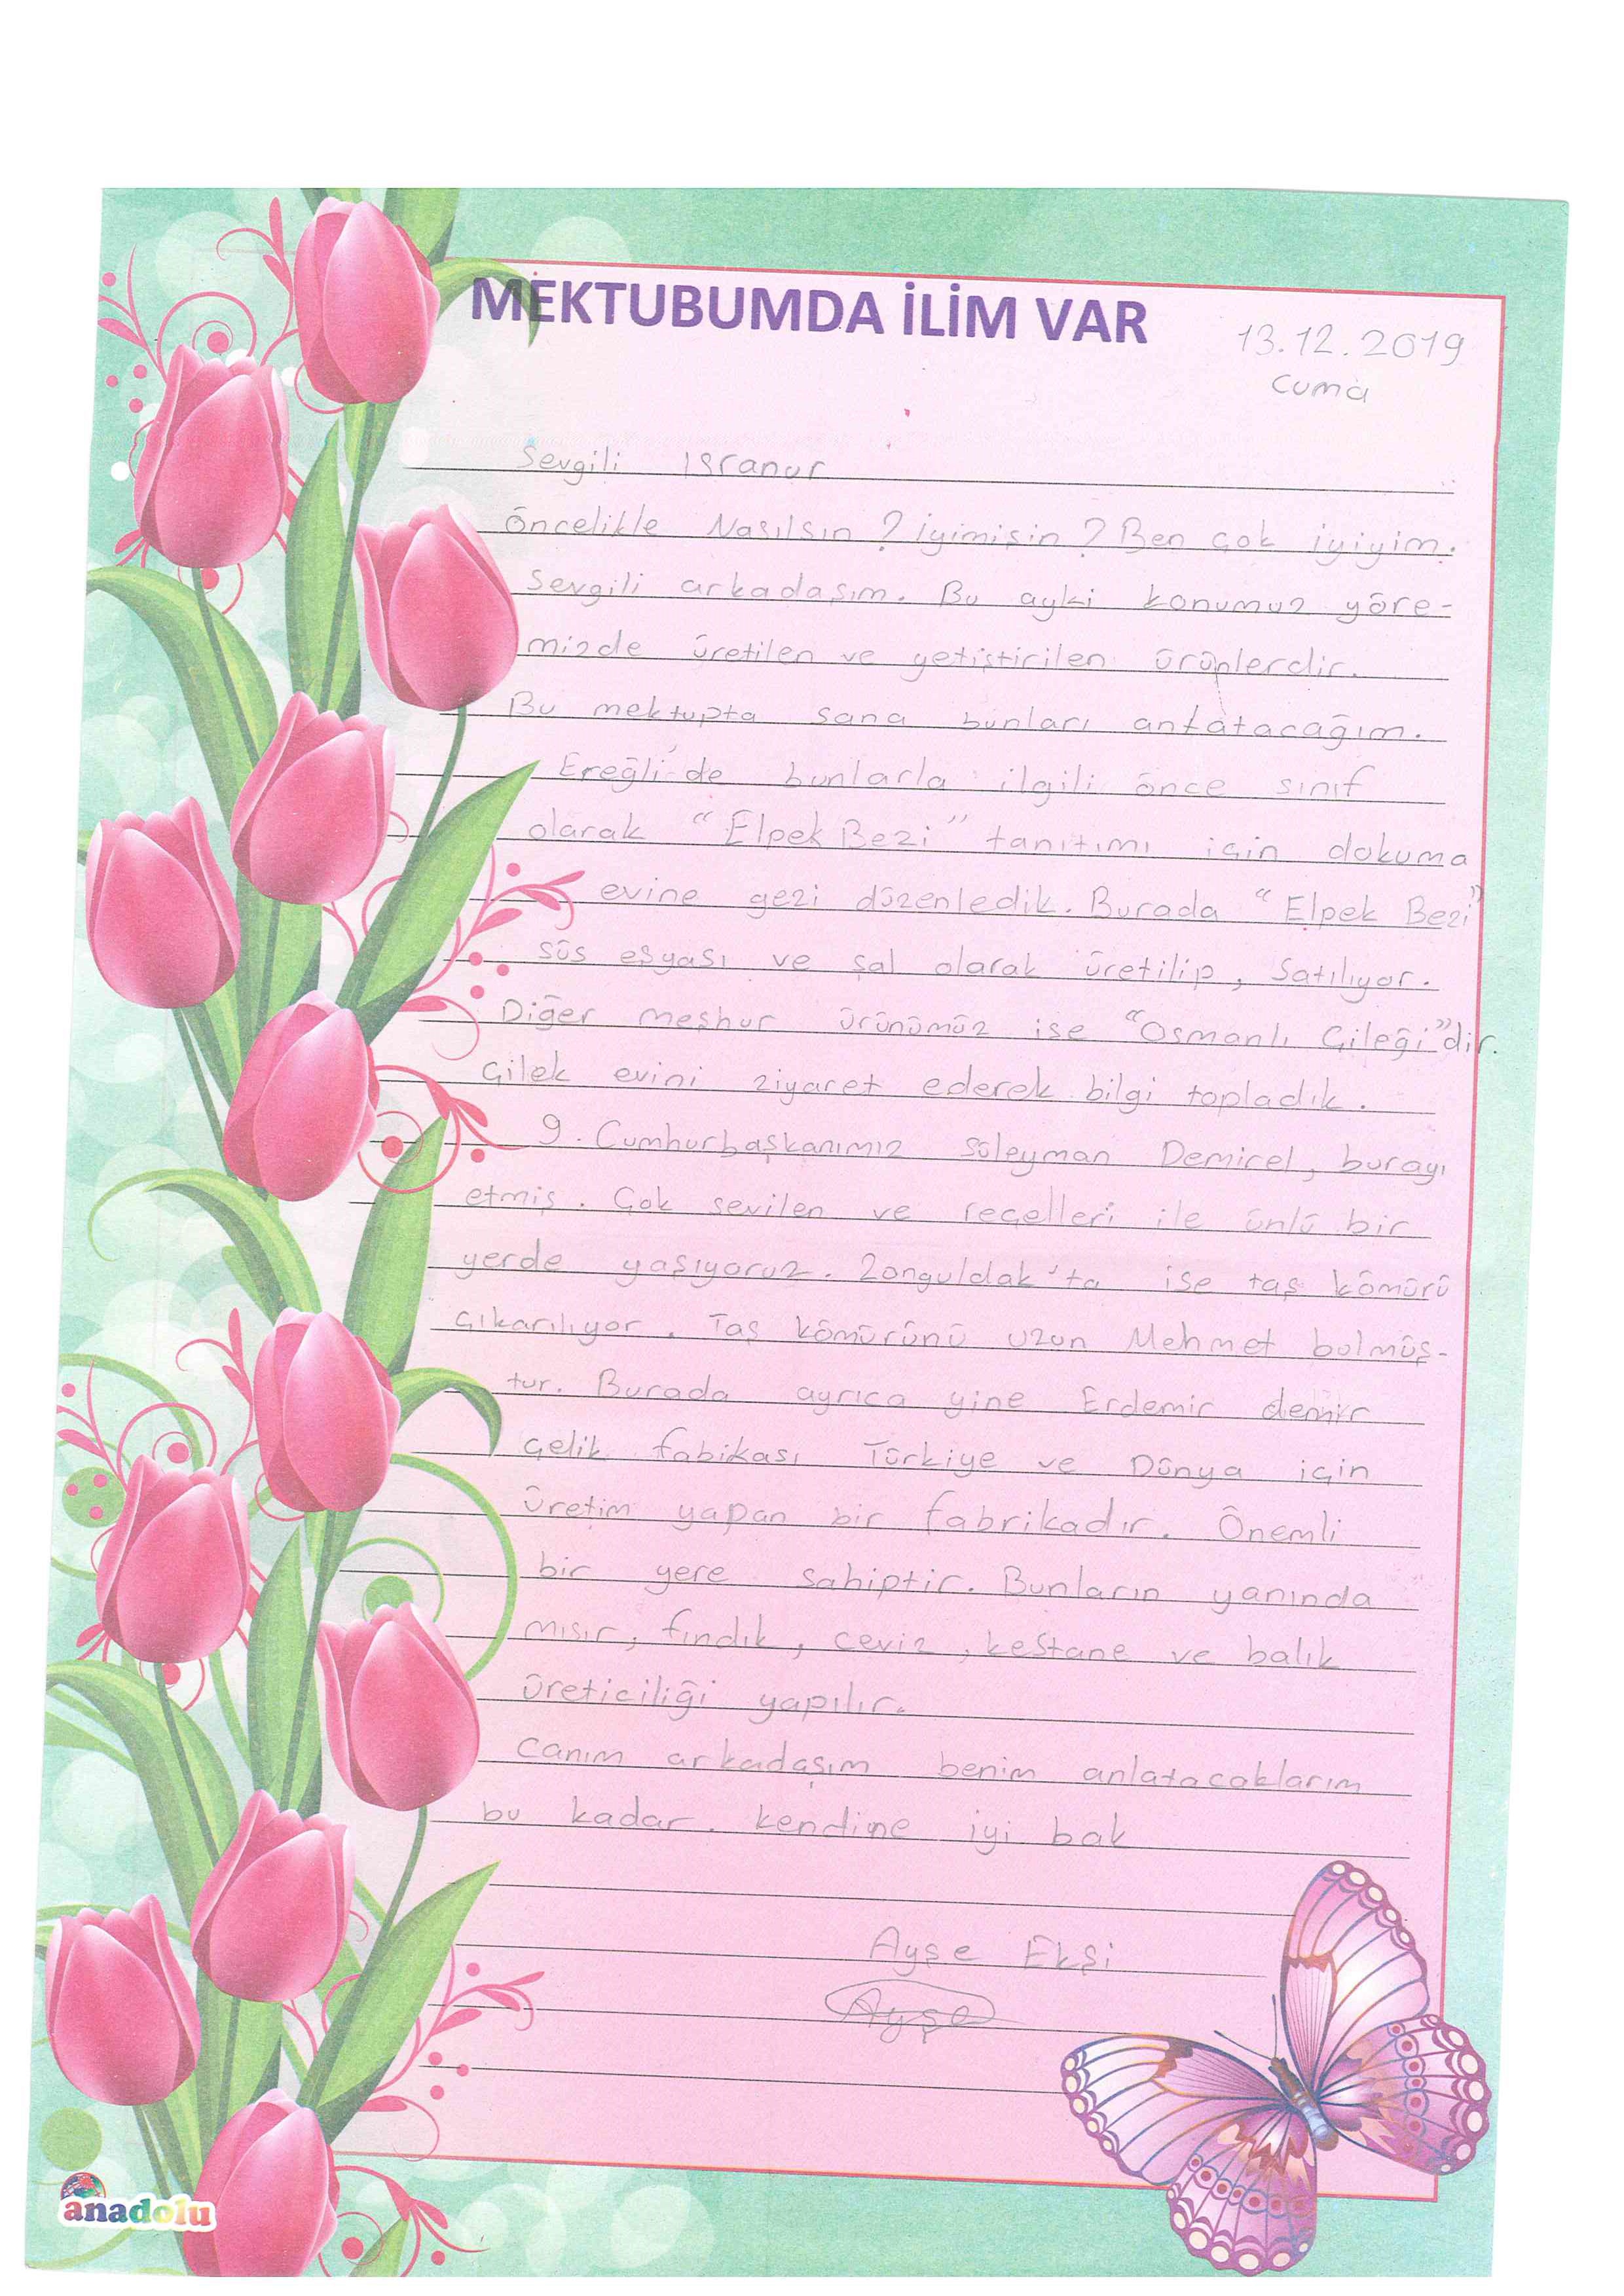 MEKTUBUMDA İLİM VAR
13.12.2019
Cuma
Sevgili Isranur
Öncelikle Nasılsın ? İyimisin ? Ben çok iyiyim.
Sevgili arkadaşım. Bu ayki konumuz yöre-
mizde üretilen ve yetiştirilen ürünlerdir.
Bu mektupta sana bunları anlatacağım.
Ereğli'de bunlarla ilgili önce sınıf
olarak "Elpek Bezi" tanıtımı için dokuma
evine gezi düzenledik. Burada "Elpek Bezi"
süs eşyası ve şal olarak üretilip, Satılıyor.
Diğer meşhur ürünümüz ise "Osmanlı Çileği"dir.
Çilek evini ziyaret ederek bilgi topladık.
9. Cumhurbaşkanımız Süleyman Demirel, burayı
etmiş. Çok sevilen ve reçelleri ile ünlü bir
yerde yaşıyoruz. Zonguldak'ta ise taş kömürü
çıkarılıyor. Taş kömürünü uzun Mehmet bulmüş-
tur. Burada ayrıca yine Erdemir demir
çelik fabikası Türkiye ve Dünya için
üretim yapan bir fabrikadır. Önemli
bir yere sahiptir. Bunların yanında
mısır, fındık, ceviz, kestane ve balık
üreticiliği yapılır.
Canım arkadaşım benim anlatacaklarım
bu kadar. kendine iyi bak
Ayşe Ekşi
Ayşe
anadolu